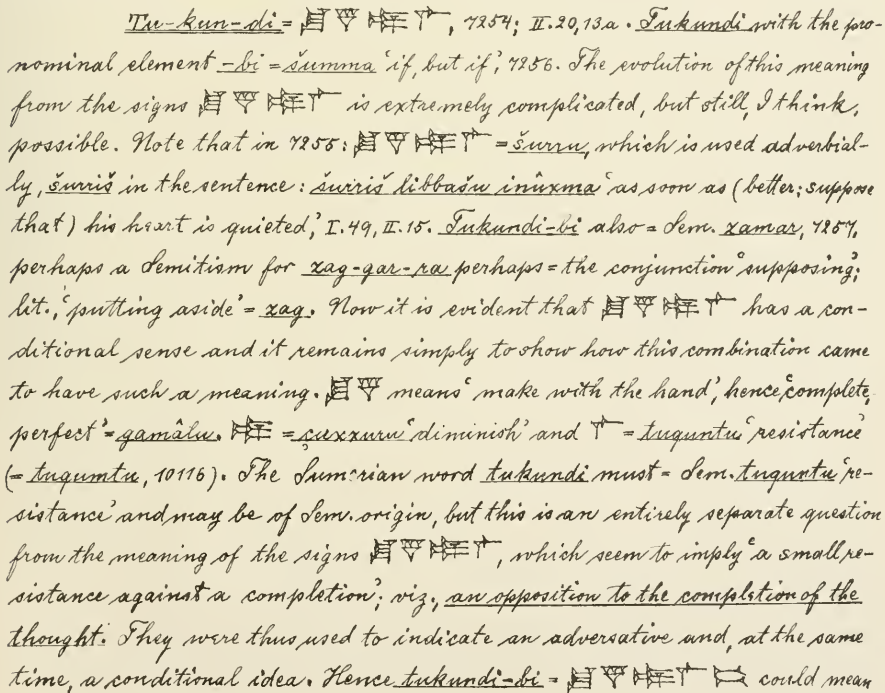 Tu-kun-di = 𒋗𒃻𒌉𒇲, 7254; II.20,13a. Tukundi with the pro-
nominal element -bi = šumma ‘if, but if’, 7256. The evolution of this meaning
from the signs 𒋗𒃻𒌉𒇲 is extremely complicated, but still, I think,
possible. Note that in 7255: 𒋗𒃻𒌉𒇲 = šurru, which is used adverbial-
ly, šurriš in the sentence: šurriš libbašu inûxma ‘as soon as (better; suppose
that) his heart is quieted’, I.49, II.15. Tukundi-bi also = Sem. zamar, 7257,
perhaps a Semitism for zag-gar-ra perhaps = the conjunction ‘supposing’;
lit., ‘putting aside’ = zag. Now it is evident that 𒋗𒃻𒌉𒇲 has a con-
ditional sense and it remains simply to show how this combination came
to have such a meaning. 𒋗𒃻 means ‘make with the hand’, hence ‘complete,
perfect’ = gamâlu. 𒌉 = çuxxuru ‘diminish’ and 𒇲 = tuquntu ‘resistance’
(= tuqumtu, 10116). The Sumerian word tukundi must = Sem. tuquntu ‘re-
sistance’ and may be of Sem. origin, but this is an entirely separate question
from the meaning of the signs 𒋗𒃻𒌉𒇲, which seem to imply ‘a small re-
sistance against a completion’; viz., an opposition to the completion of the
thought. They were thus used to indicate an adversative and, at the same
time, a conditional idea. Hence tukundi-bi = 𒋗𒃻𒌉𒇲𒁉 could mean